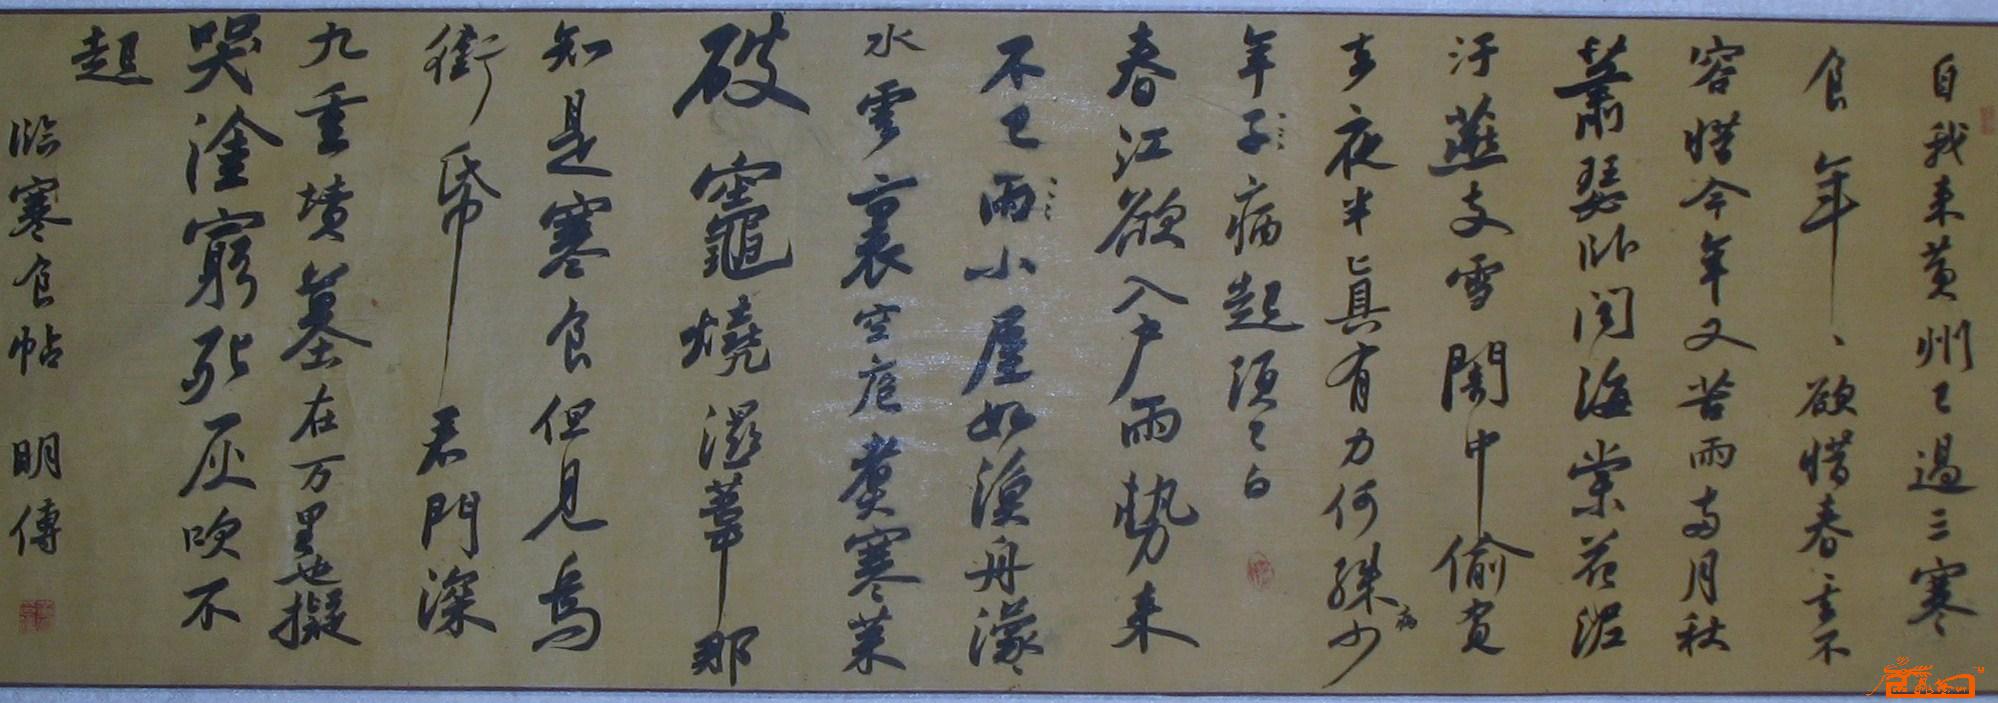 自我来黄州已過三寒
食年、欲惜春春去不
容惜今年又苦雨两月秋
蕭瑟卧闻海棠花泥
汙燕支雪闇中偷負
去夜半真有力何殊少
年子病起頭已白
春江欲入户雨勢来
不已雨小屋如漁舟濛
水雲裏空庖煮寒菜
破竈燒濕葦那
知是寒食但見烏
銜帋君門深
九重墳墓在万里也擬
哭塗窮死灰吹不
起
臨寒食帖 明傳